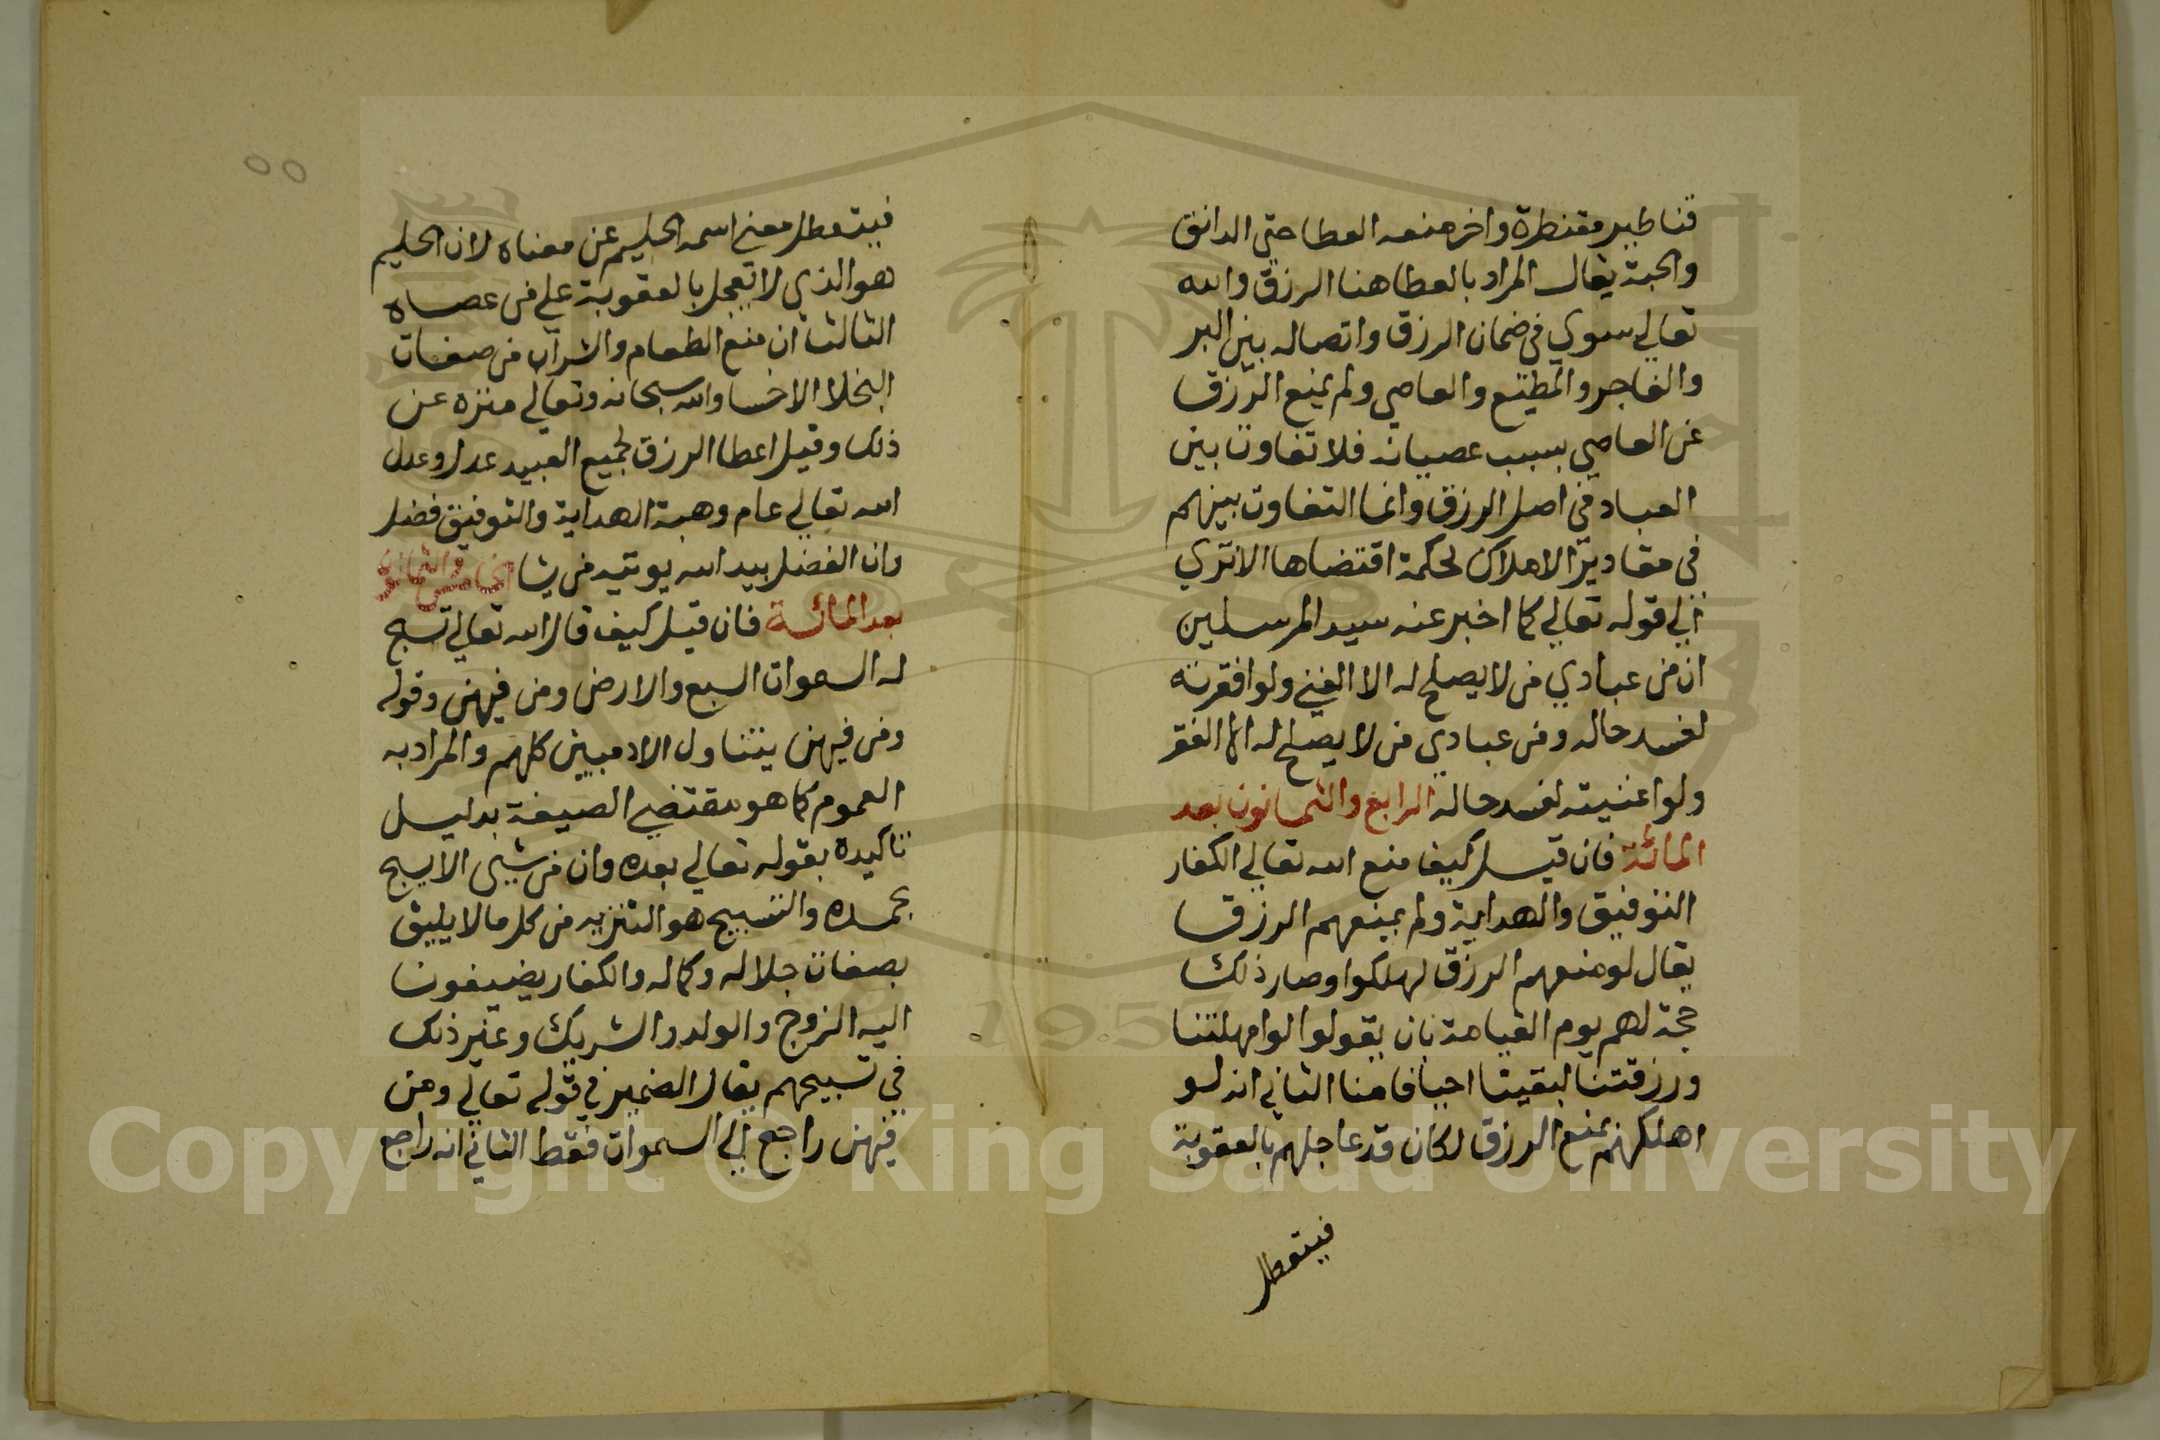 قناطير مقنطرة واخر منعه العطا حتي الدانق
والحبة يقال المراد بالعطا هنا الرزق والله
تعالي سوي في ضمان الرزق واتصاله بين البر
والفاجر والمطيع والعاصي ولم يمنع الرزق
عن العاصي بسبب عصيانه فلا تفاوت بين
العباد في اصل الرزق وانما التفاوت بينهم
في مقادير الاملاك لحكمة اقتضاها الا تري
الي قوله تعالي كما اخبر عنه سيد المرسلين
ان من عبادي من لا يصلح له الا الغني ولو افقرته
لفسد حاله ومن عبادي من لا يصلح له الا الفقر
ولو اغنيته لفسد حاله الرابع والثمانون بعد
المائة فان قيل كيف منع الله تعالي الكفار
التوفيق والهداية ولم يمنعهم الرزق
يقال لو منعهم الرزق لهلكوا وصار ذلك
حجة لهم يوم القيامة بان يقولوا لو امهلتنا
ورزقتنا لبقينا احيا فامنا الثاني انه لو
اهلكهم بمنع الرزق لكان قد عاجلهم بالعقوبة
فيتعطل
٥٥
فيتعطل معني اسمه الحليم عن معناه لان الحليم
هو الذي لا يعجل بالعقوبة علي من عصاه
الثالث ان منع الطعام والشراب من صفات
البخلا الاخسا والله سبحانه وتعالي منزه عن
ذلك وقيل اعطا الرزق لجميع العبيد عدل وعدل
الله تعالي عام وهبة الهداية والتوفيق فضل
وان الفضل بيد الله يوتيه من يشا الخامس والثمانون
بعد المائة فان قيل كيف قال الله تعالي تسبح
له السموات السبع والارض ومن فيهن وقوله
ومن فيهن يتناول الادميين كلهم والمراد به
العموم كما هو مقتضي الصيغة بدليل
تاكيده بقوله تعالي بعده وان من شيى الا يسبح
بحمده والتسبيح هو التنزيه من كل ما لا يليق
بصفات جلاله وكماله والكفار يضيفون
اليه الزوج والولد والشريك وغير ذلك
في تسبيحهم يقال الضمير في قوله تعالي ومن
فيهن راجع الي السموات فقط الثاني انه راجع
1957
Copyright © King Saud University